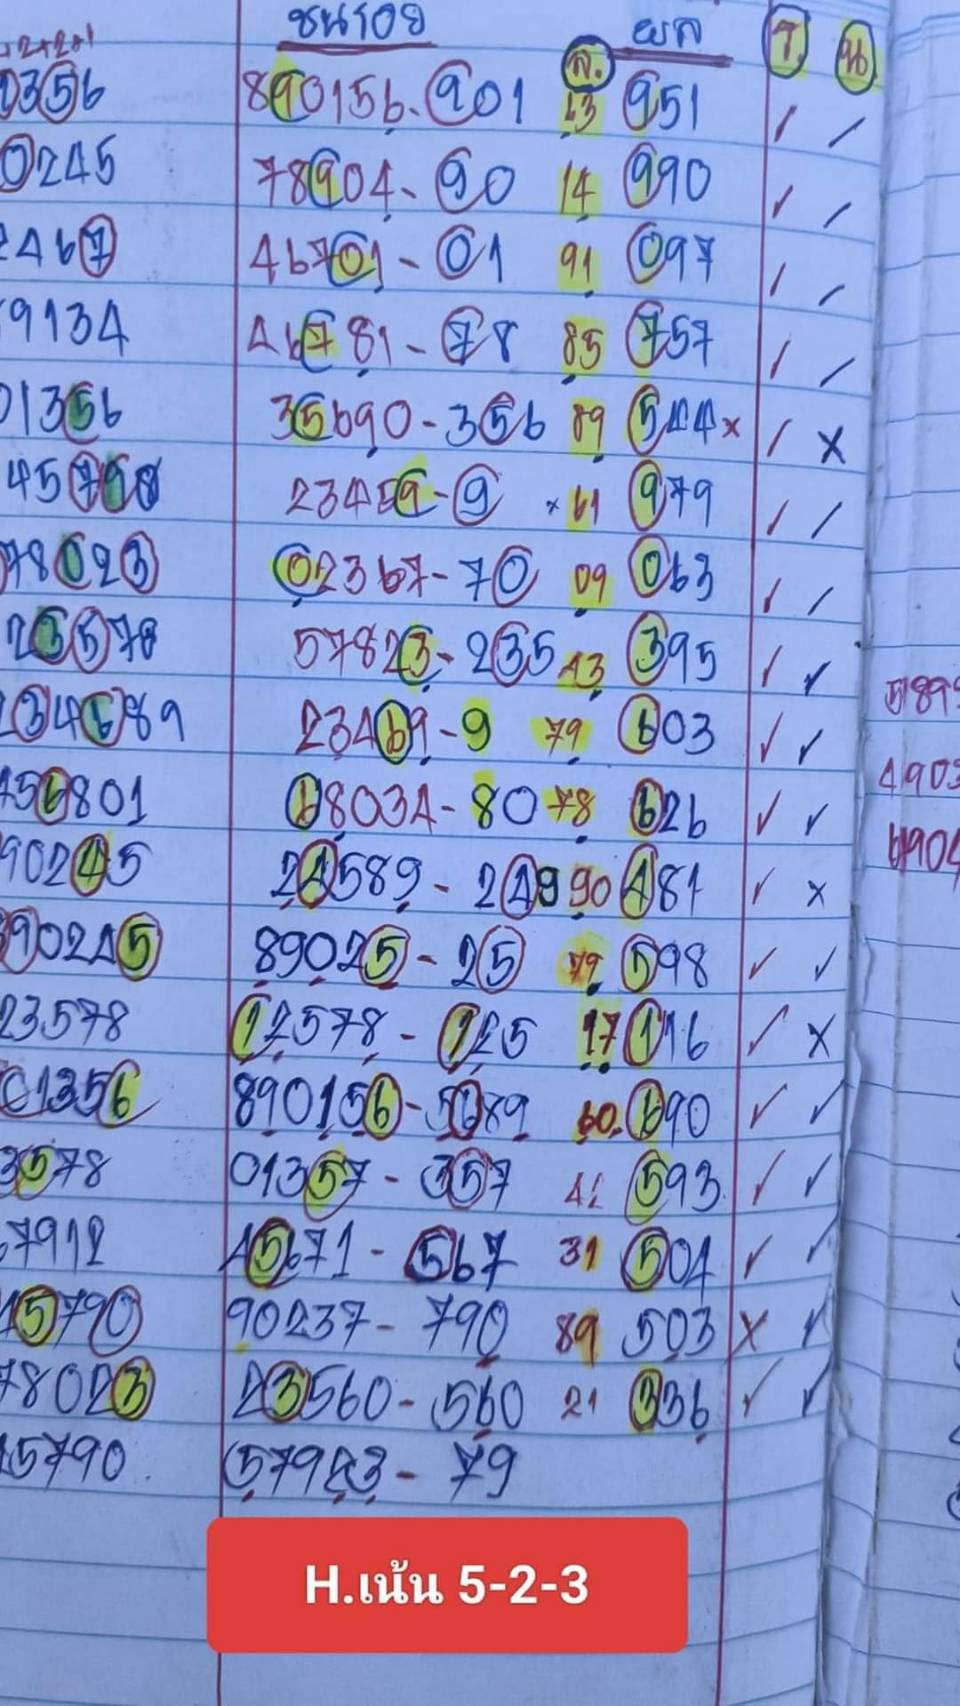 ชนร้อย ผล
ล. ร น
0356 890156-901 63 951
0245 78904-90 14 990
2467 46701-01 91 097
9134 46781-78 85 757
01356 35690-356 89 544 x x
45798 23459-9 x61 979
78023 02367-70 09 063
23578 57823-235 43 395
2346789 23469-9 79 603
456801 68034-80 78 626
90245 24589-249 90 481 x
890245 89025-25 79 598
23578 12578-125 17 116 x
01356 890156-5689 60. 690
3578 01357-357 593
7912 45671-567 31 504
45790 90237-790 89 503 x
78023 23560-560 21 336
45790 57983-79
H.เน้น 5-2-3